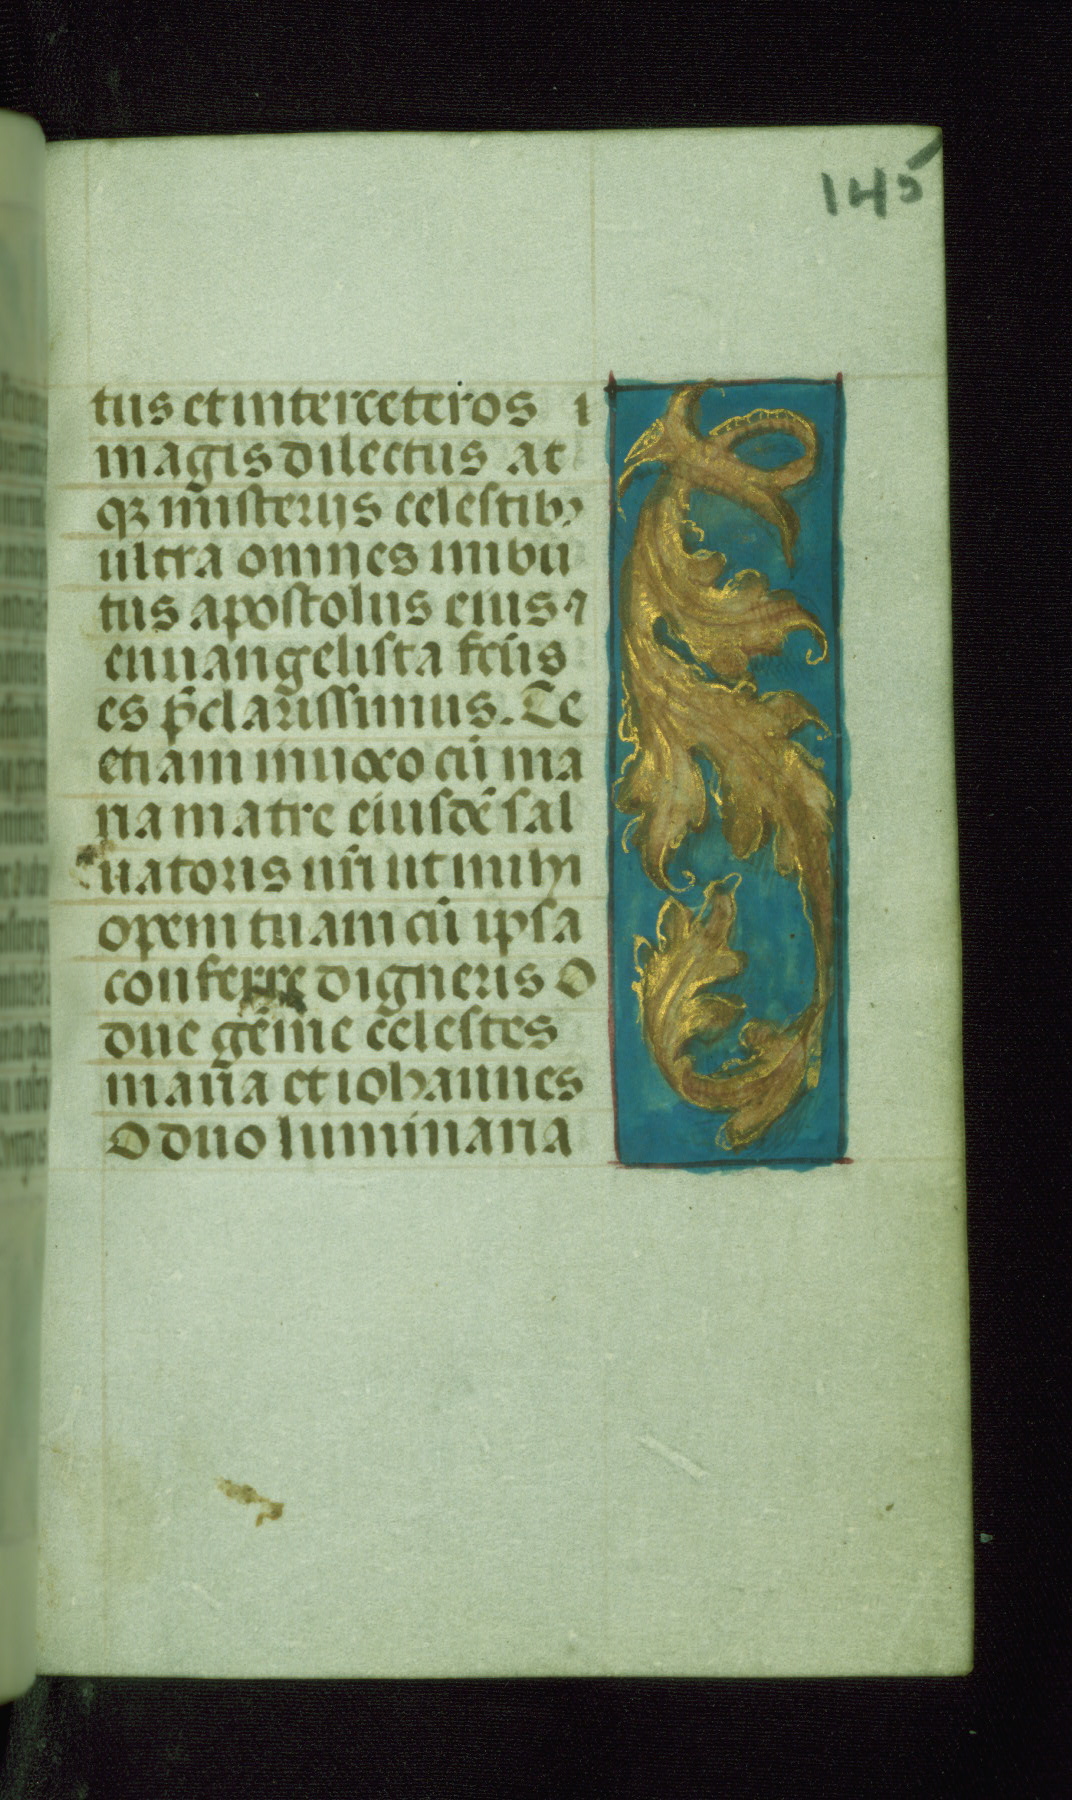 145
tus et inter ceteros i
magis dilectus at
qꝫ misterijs celestibꝰ
ultra omnes imbu
tus apostolus eius ⁊
euuangelista fcūs
es p̄clarissimus. Te
etiam inuoco cū ma
ria matre eiusdē sal
uatoris nr̄i ut mihi
opem tuam cū ipsa
conferre digneris O
due gēme celestes
maria et iohannes
O duo luminaria